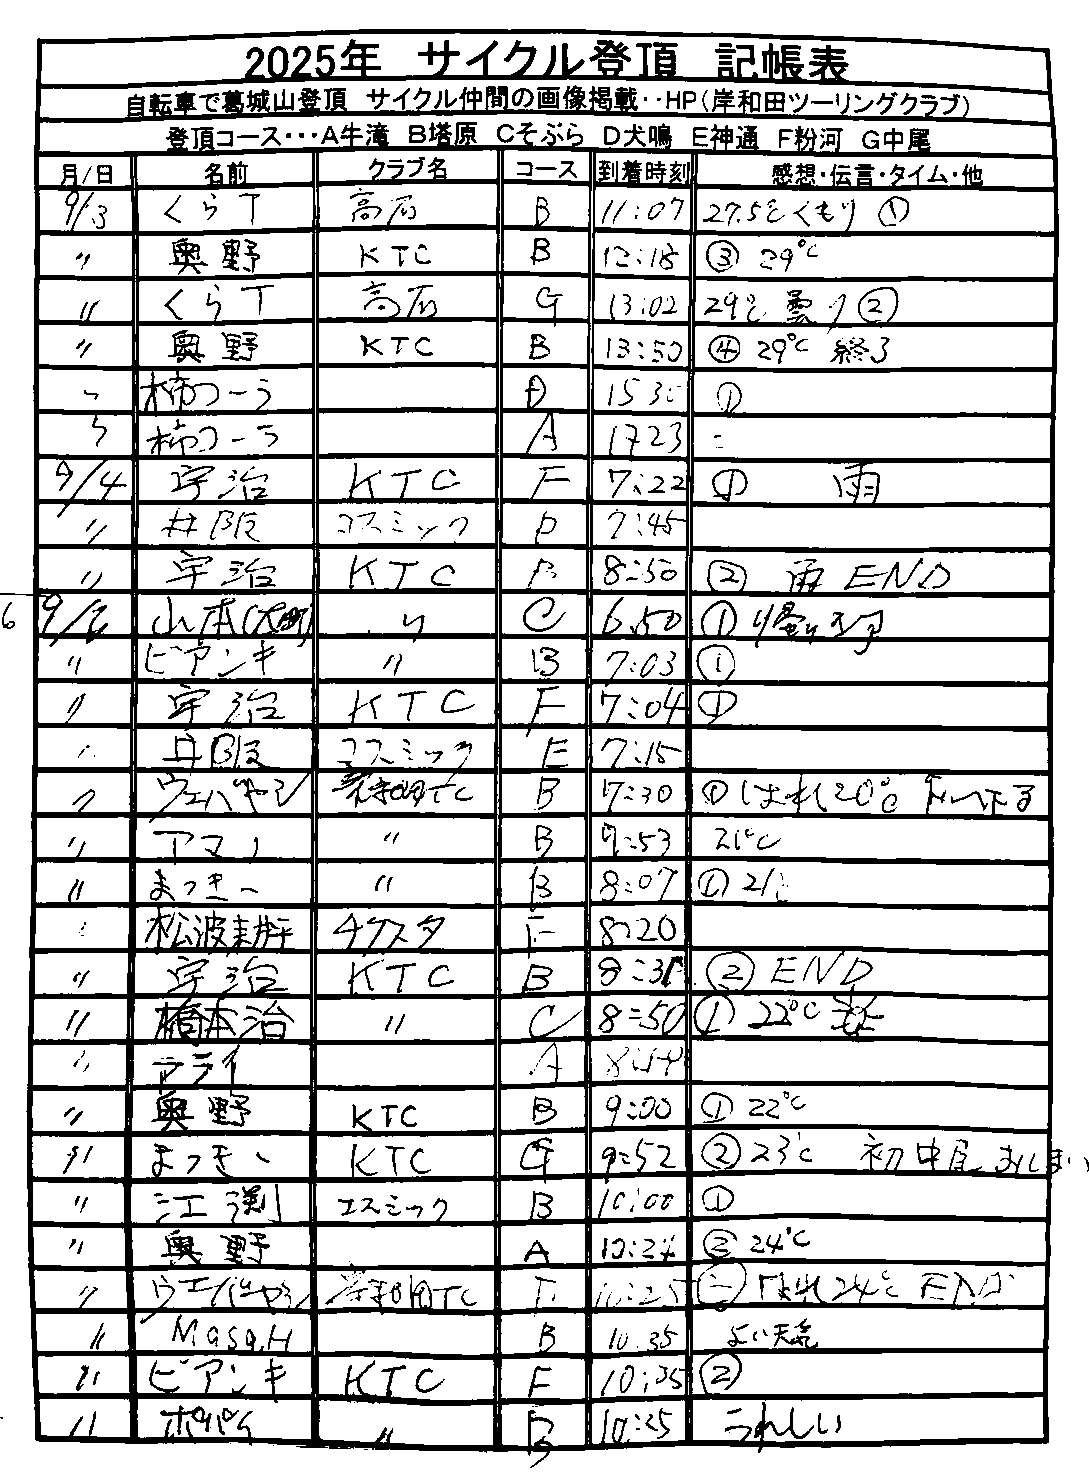 2025年 サイクル登頂 記帳表
自転車で葛城山登頂 サイクル仲間の画像掲載‥HP(岸和田ツーリングクラブ)
登頂コース…A牛滝 B塔原 Cそぶら D犬鳴 E神通 F粉河 G中尾
月/日 名前 クラブ名 コース 到着時刻 感想・伝言・タイム・他
9/3 くらT 高石 B 11:07 27.5℃くもり ①
〃 奥野 KTC B 12:18 ③ 29℃
〃 くらT 高石 G 13:02 29℃ 曇り ②
〃 奥野 KTC B 13:50 ④ 29℃ 終了
柿つーら D 15 3 ①
柿つーら A 17 23
9/4 宇治 KTC F 7:22 ① 雨
〃 井阪 コスミック 7:45
〃 宇治 KTC 8:50 ② 雨 END
6 9/ 山本(大町) 〃 C 6.50 ①
〃 ビアンキ 〃 B 7:03 ①
〃 宇治 KTC F 7:04 ①
井阪 コスミック E 7:15
〃 ウエバヤシ TC B 7:30 ① はれ 20℃
〃 アマノ 〃 B 7:53 21℃
〃 まっきー 〃 B 8:07 ① 21
松波耕平 ナクスタ F 8:20
〃 宇治 KTC B 8:3 ② END
〃 橋本治 〃 C 8:50 ① 22℃
アライ A
〃 奥野 KTC B 9:00 ① 22℃
〃 まっきー KTC G 9:52 ② 23℃ 初中尾 おしまい
〃 江渕 コスミック B 10:00 ①
〃 奥野 A 10:24 ② 24℃
〃 ウエバヤシ TC 10:25 ② はれ 24℃ END
〃 Masa.H B 10.35 よい天気
〃 ビアンキ KTC F 10:35 ②
〃 ポパイ 〃 B 10:35 うれしい